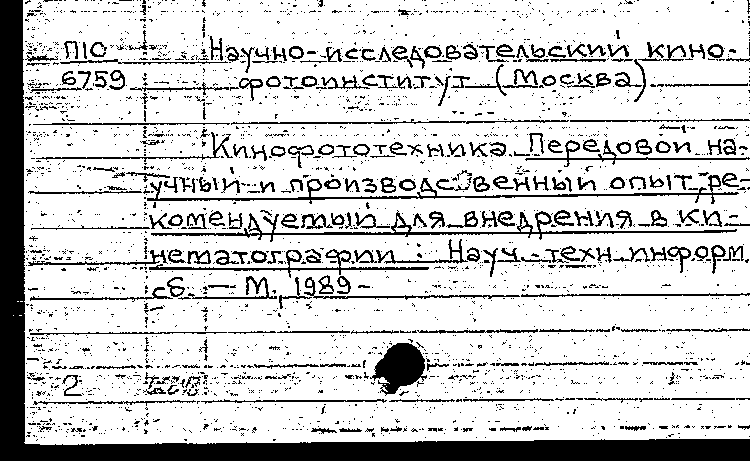 П10 Научно-исследовательский кино-
6759 фотоинститут (Москва)
Кинофототехника. Передовой на-
учный и производственный опыт, ре-
комендуемый для внедрения в ки-
нематографии : Науч.-техн. информ.
сб. — М., 1989-
2